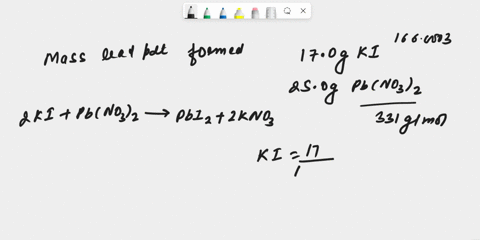 Mass lead ppt formed
17.0g KI 166.0003
25.0g Pb(NO3)2
331 g/mol
2KI + Pb(NO3)2 → PbI2 + 2KNO3
KI = 17
1